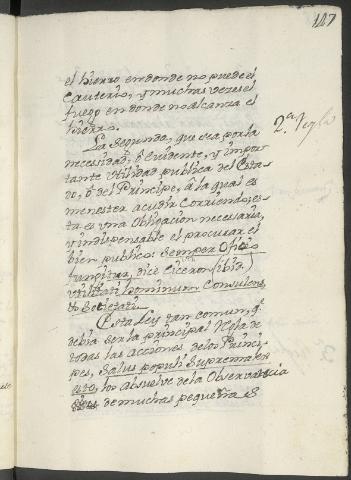 147
el hierro en donde no puede el
Cauterio, y muchas vezes el
fuego en donde no alcanza el
hierro.
2.ª Regla
La Segunda, que sea por la
necessidad, ô evidente, y impor
tante Vtilidad publica del Esta-
do, ô del Principe, â la qual es
menester acudir Corriendo; es-
ta es vna Obligacion necessaria,
y indispensable el procurar el
bien publico: Semper Oficio
fungitur, dice Ciceron (ibid.)
vtilitati hominum Consulens,
& Societati.
Esta Ley tan comun, q.e
debia ser la principal Regla de
todas las acciones de los Princi-
pes, Salus populi Suprema lex
esto, los absuelve de la Observancia
de muchas pequeñas